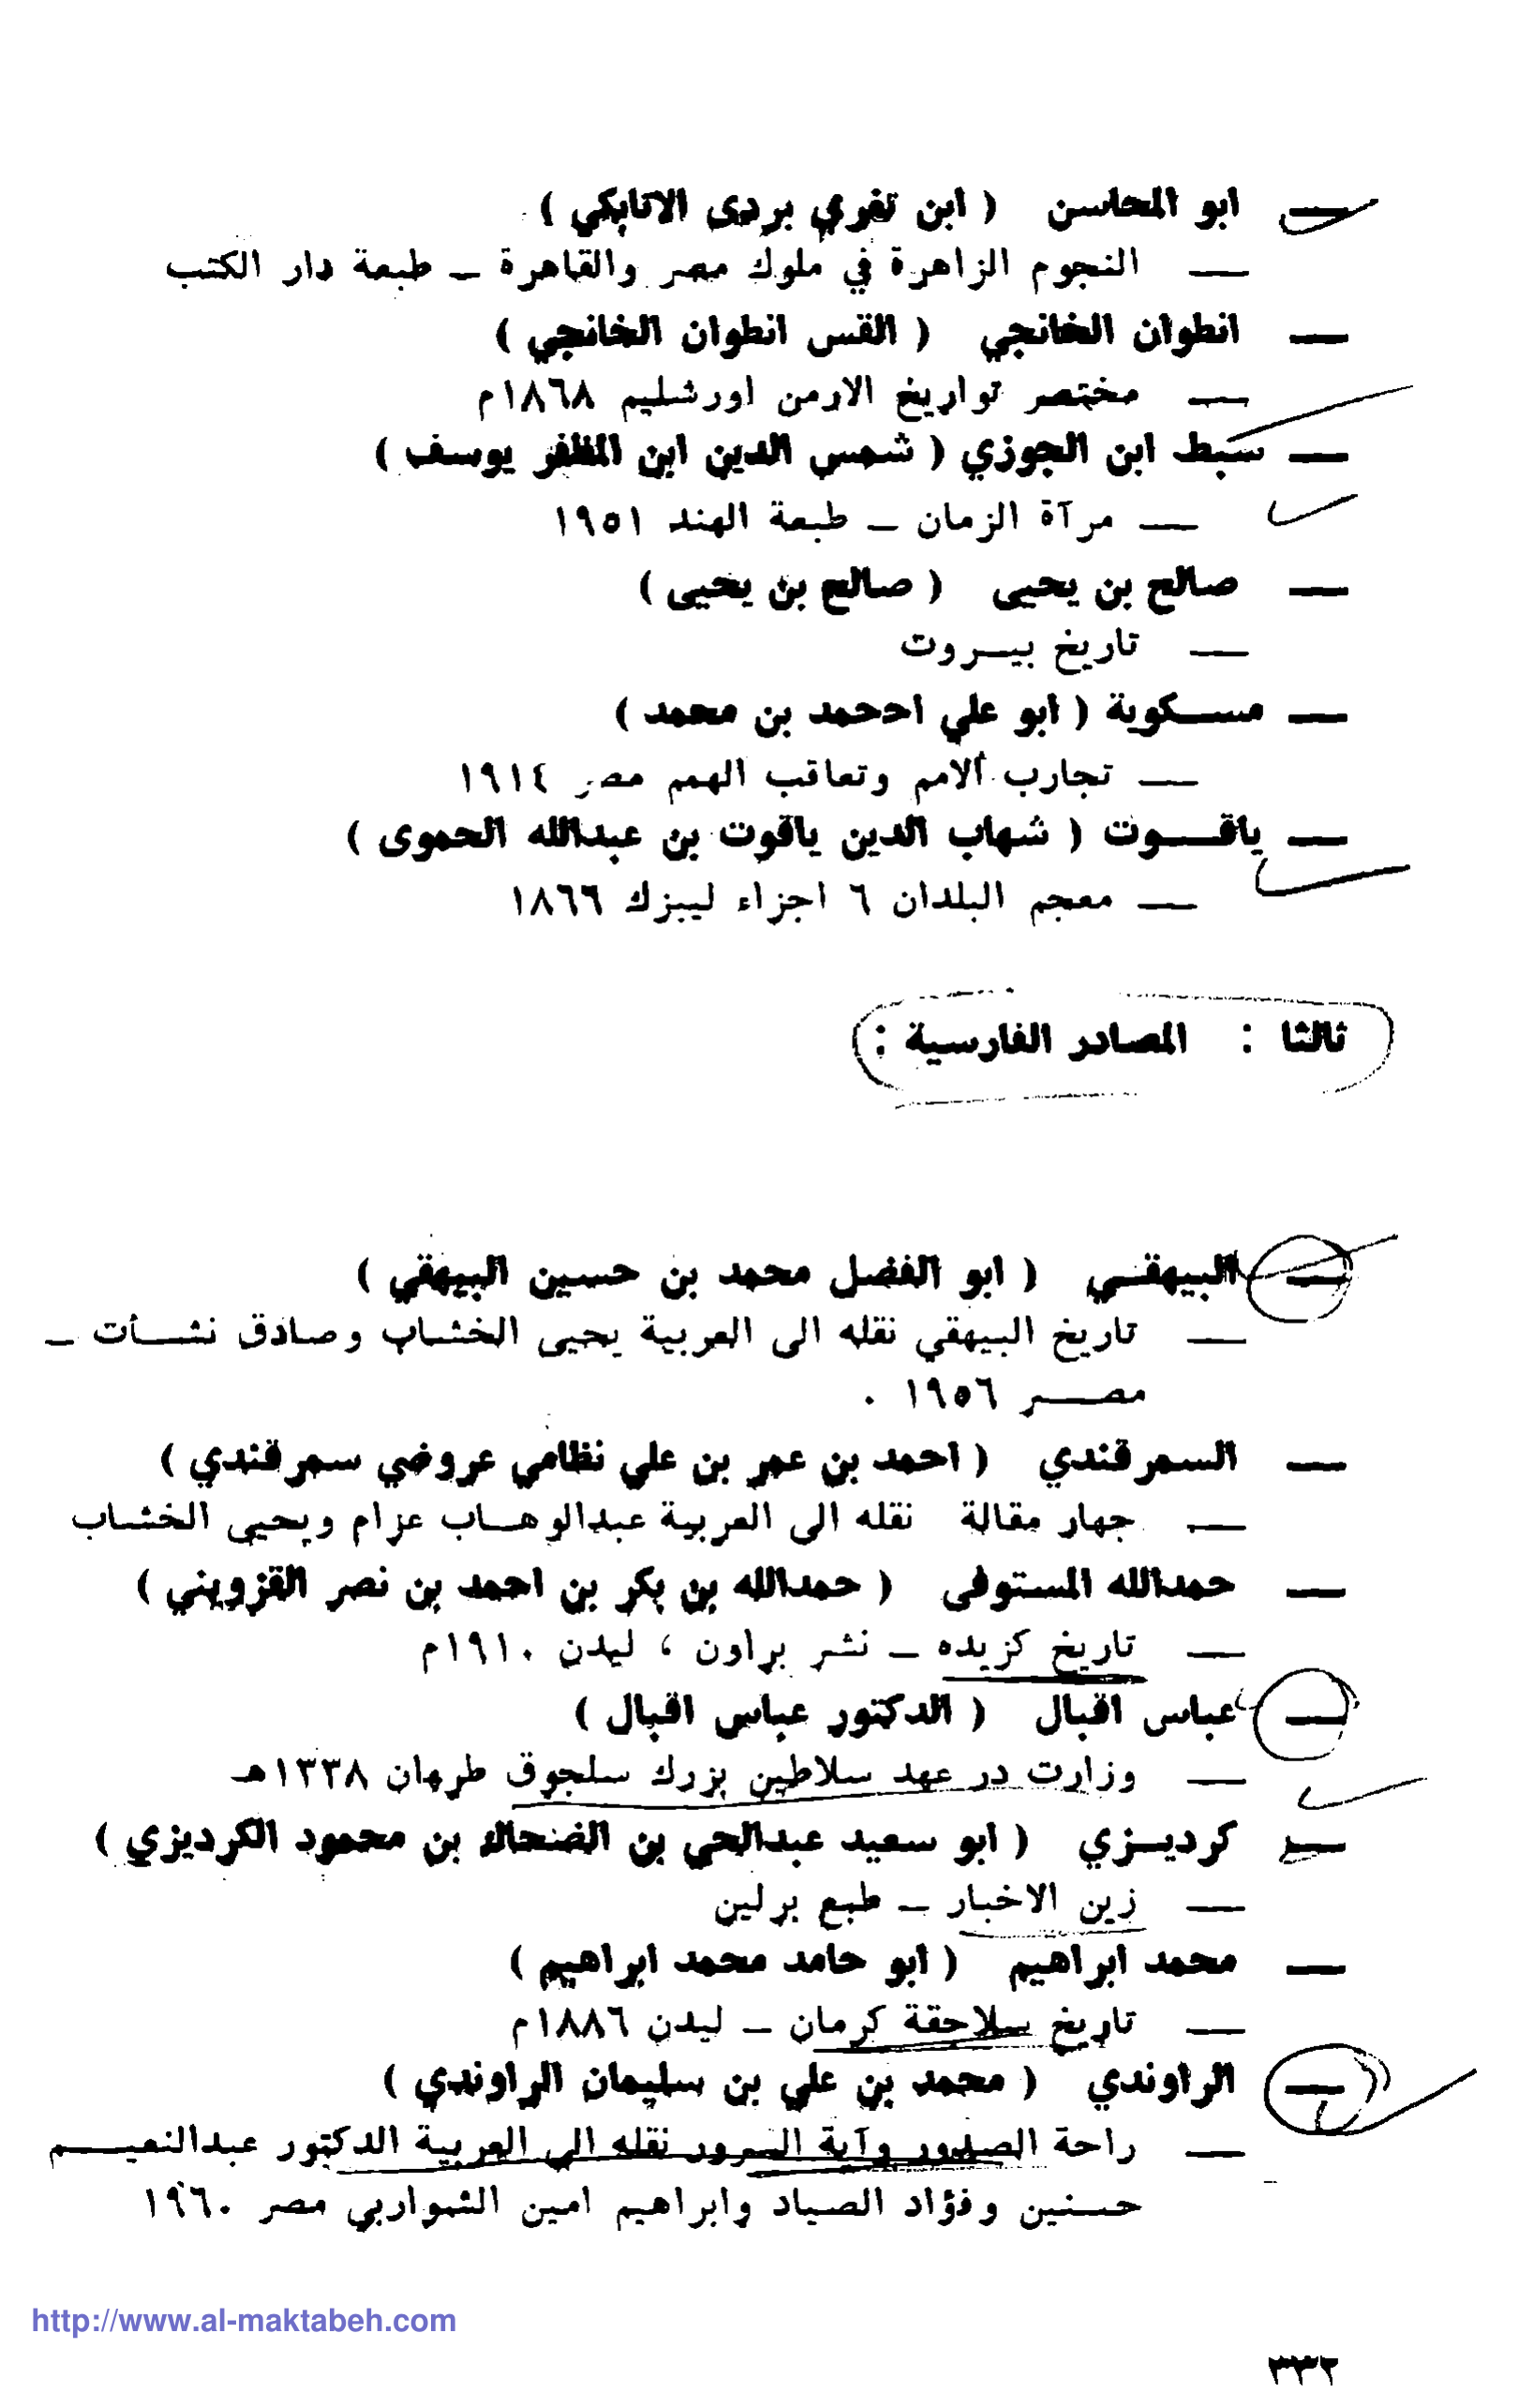 — ابو المحاسن ( ابن تغري بردى الاتابكي )
— النجوم الزاهرة في ملوك مصر والقاهرة – طبعة دار الكتب
— انطوان الخانجي ( القس انطوان الخانجي )
— مختصر تواريخ الارمن اورشليم ١٨٦٨م
— سبط ابن الجوزي ( شمس الدين ابن المظفر يوسف )
— مرآة الزمان – طبعة الهند ١٩٥١
— صالح بن يحيى ( صالح بن يحيى )
— تاريخ بيــروت
— مســكوية ( ابو علي اححمد بن محمد )
— تجارب ألامم وتعاقب الهمم مصر ١٩١٤
— ياقــوت ( شهاب الدين ياقوت بن عبدالله الحموى )
— معجم البلدان ٦ اجزاء ليبزك ١٨٦٦
ثالثا : المصادر الفارسية :
— البيهقــي ( ابو الفضل محمد بن حسين البيهقي )
— تاريخ البيهقي نقله الى العربية يحيى الخشاب وصادق نشــأت –
مصــر ١٩٥٦ .
— السمرقندي ( احمد بن عمر بن علي نظامي عروضي سمرقندي )
— جهار مقالة نقله الى العربية عبدالوهــاب عزام ويحيى الخشاب
— حمدالله المستوفى ( حمدالله بن بكر بن احمد بن نصر القزويني )
— تاريخ كزيده – نشر براون ، ليدن ١٩١٠م
— عباس اقبال ( الدكتور عباس اقبال )
— وزارت در عهد سلاطين بزرك سلجوق طرهان ١٣٣٨هـ
— كرديــزي ( ابو سعيد عبدالحي بن الضحاك بن محمود الكرديزي )
— زين الاخبار – طبع برلين
— محمد ابراهيم ( ابو حامد محمد ابراهيم )
— تاريخ سلاحقة كرمان – ليدن ١٨٨٦م
— الراوندي ( محمد بن علي بن سليمان الراوندي )
— راحة الصدور وآية السرور نقله الى العربية الدكتور عبدالنعيــم
حسنين وفؤاد الصياد وابراهيم امين الشواربي مصر ١٩٦٠
http://www.al-maktabeh.com
٣٣٢